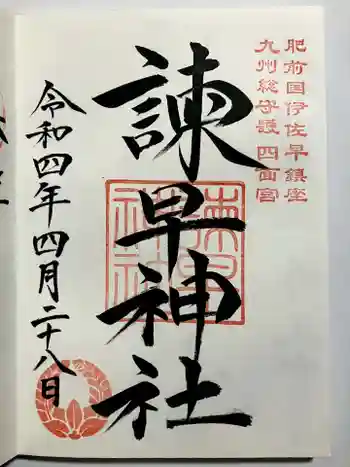 肥前国伊佐早鎮座
九州総守護四面宮
諫早神社
諫早
神社
令和四年四月二十八日